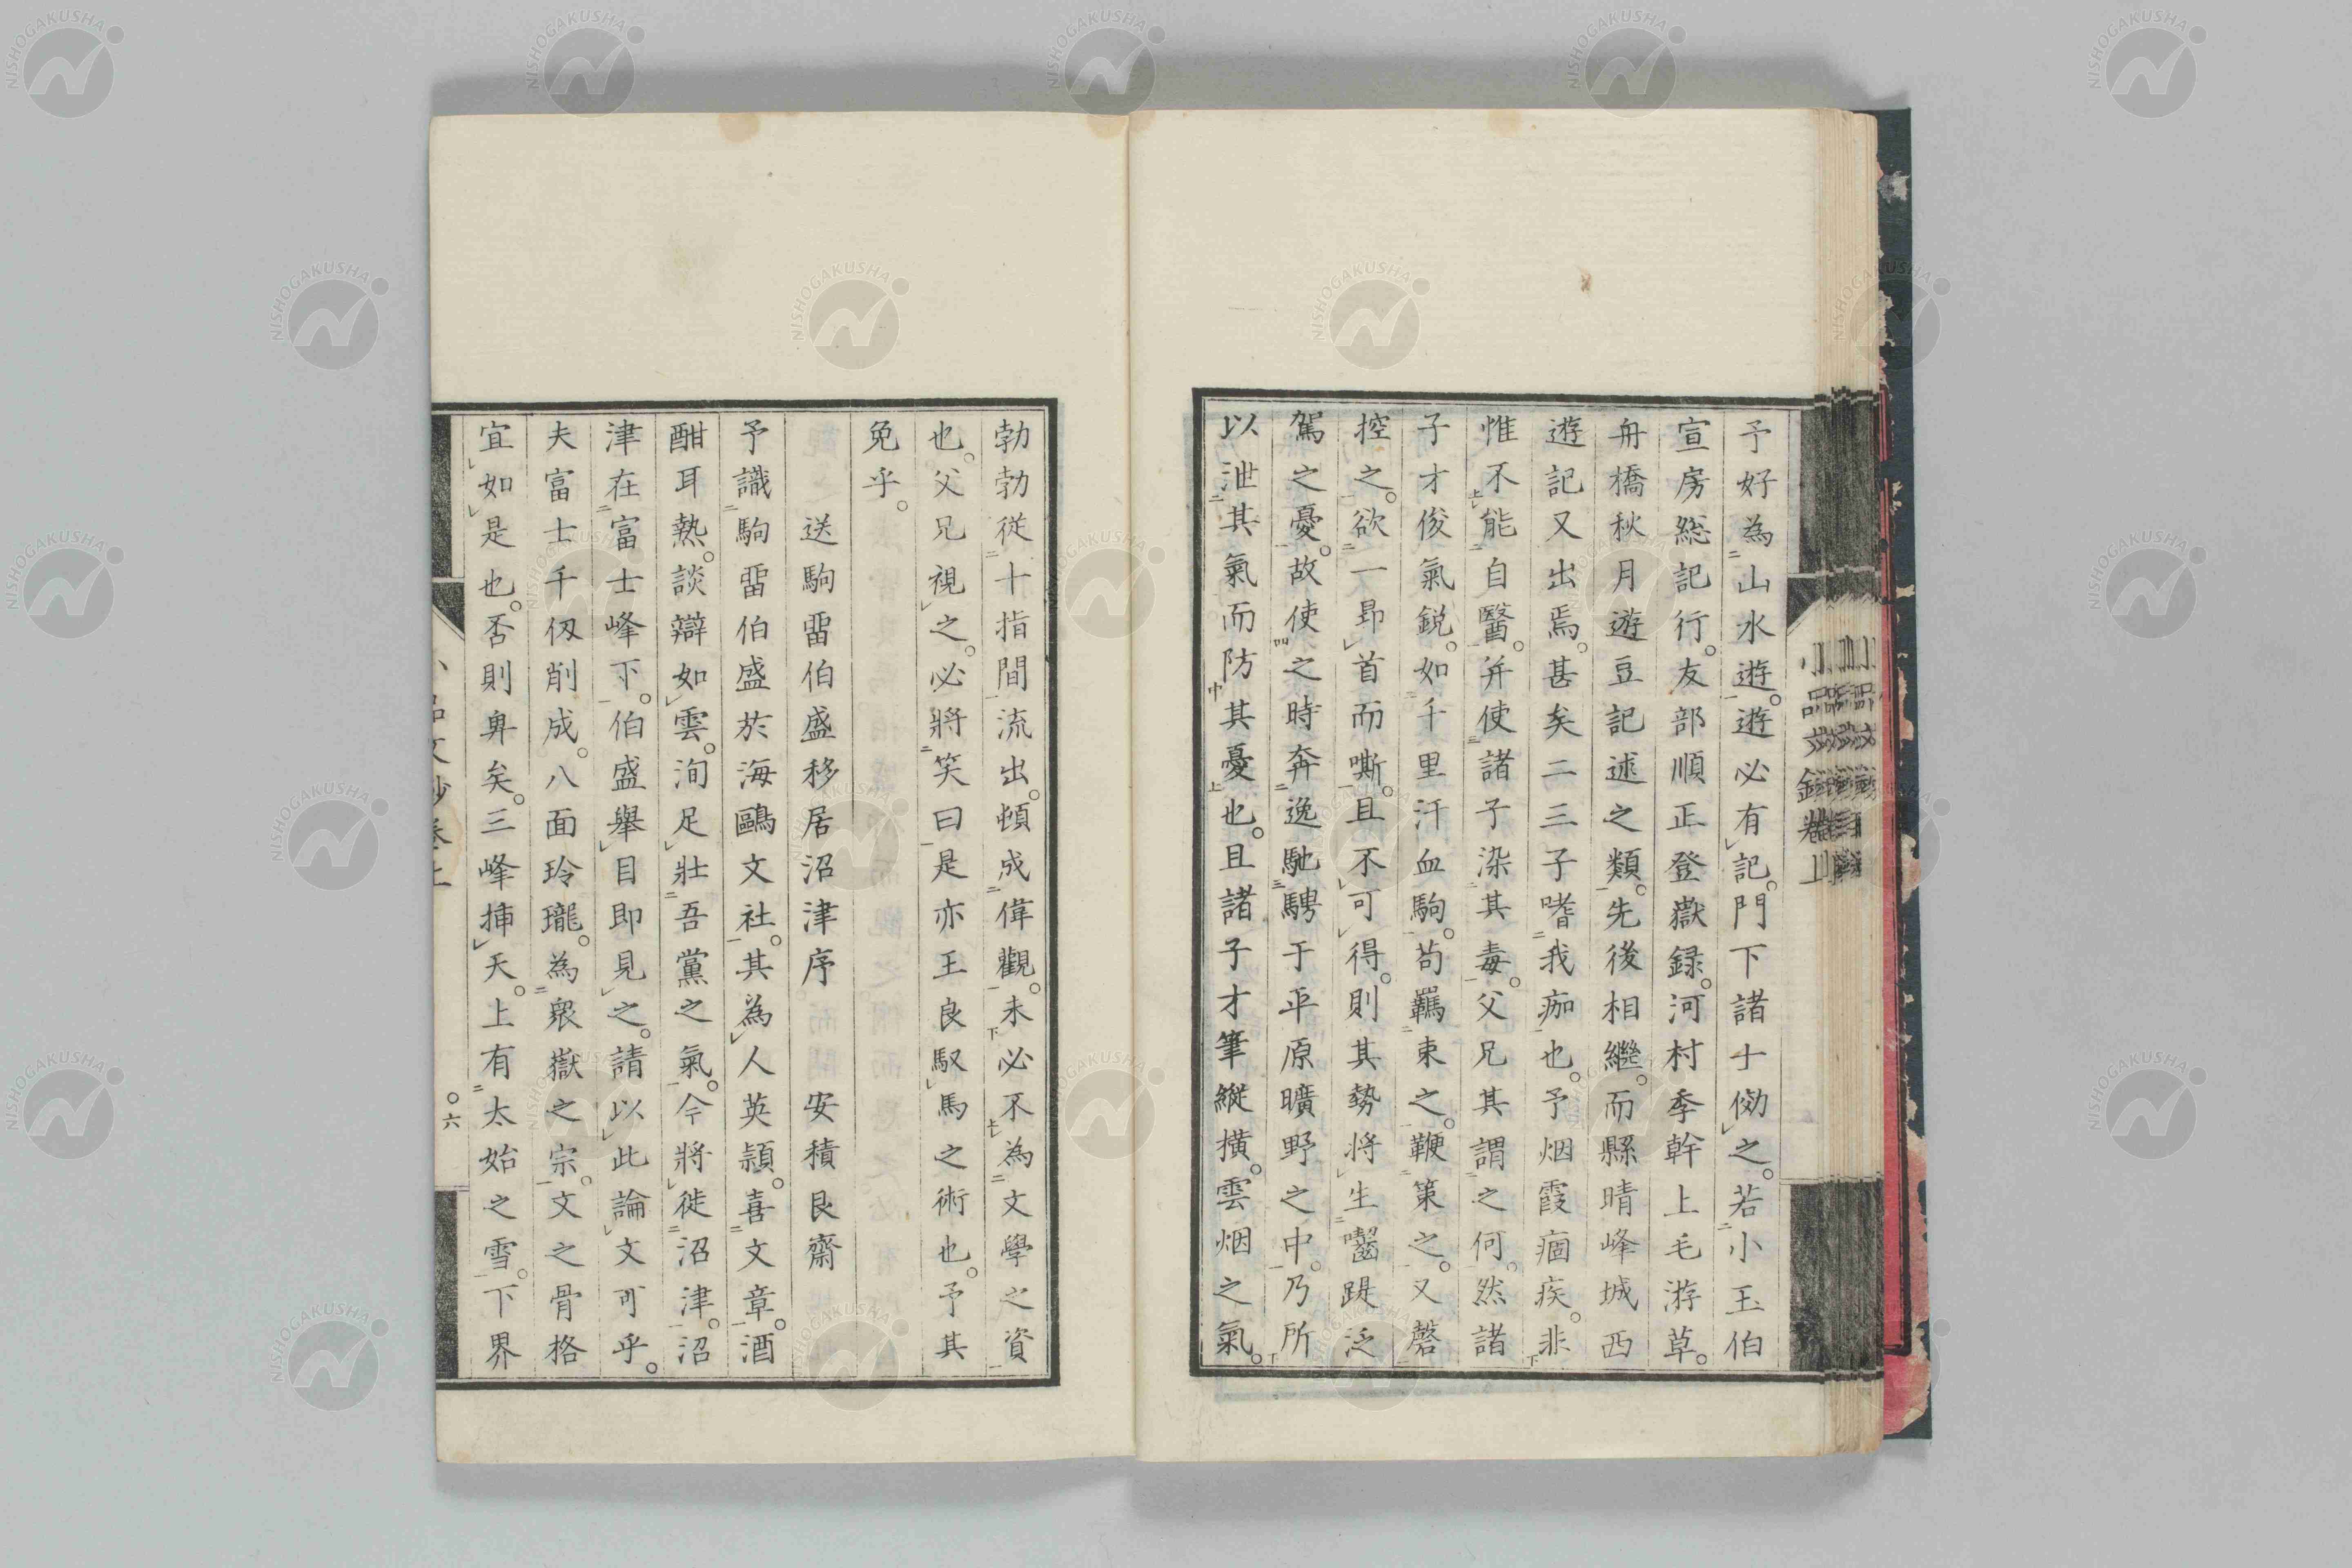 予好為山水遊。遊必有記。門下諸士傚之。若小玉伯
宣房総記行。友部順正登嶽録。河村季幹上毛游草。
舟橋秋月遊豆記述之類。先後相繼。而縣晴峰城西
遊記又出焉。甚矣二三子嗜我痂也。予烟霞痼疾。非
惟不能自醫。并使諸子染其毒。父兄其謂之何。然諸
子才俊氣鋭。如千里汗血駒。苟羈束之。鞭策之。又磬
控之。欲一昂首而嘶。且不可得。則其勢将生齧踶泛
駕之憂。故使之時奔逸馳騁于平原曠野之中。乃所
以泄其氣而防其憂也。且諸子才筆縱横。雲烟之氣。
勃勃従十指間流出。頓成偉觀。未必不為文學之資
也。父兄視之。必將笑曰是亦王良馭馬之術也。予其
免乎。
送駒畱伯盛移居沼津序 安積艮齋
予識駒畱伯盛於海鷗文社。其為人英穎。喜文章。酒
酣耳熱。談辯如雲。洵足壯吾黨之氣。今將徙沼津。沼
津在富士峰下。伯盛舉目即見之。請以此論文可乎。
夫富士千仭削成。八面玲瓏。為衆嶽之宗。文之骨格
宜如是也。否則卑矣。三峰挿天。上有太始之雪。下界
小品文鈔卷上
〇六
NISHOGAKUSHA